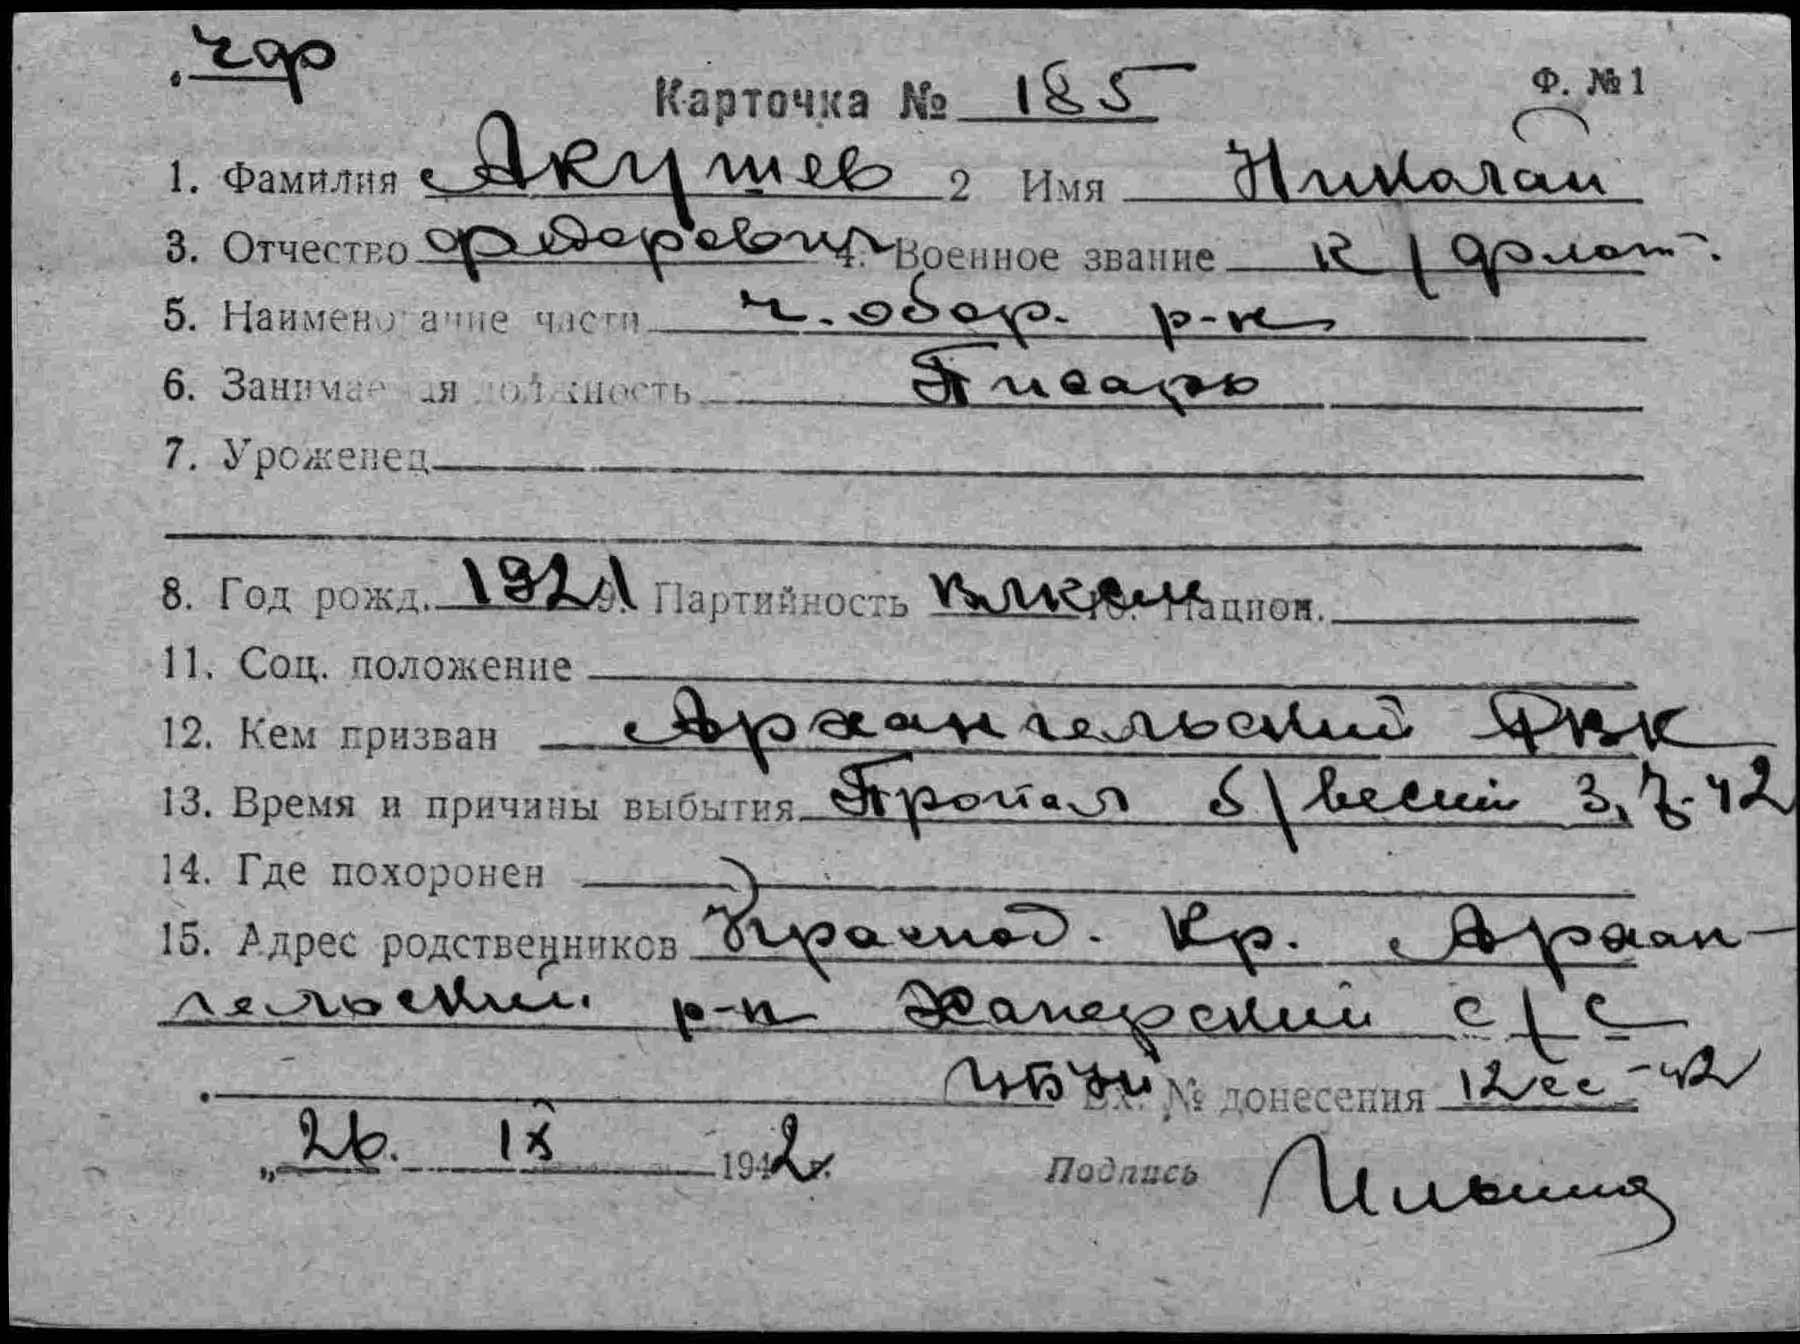 чф
Карточка № 185
Ф. № 1
1. Фамилия Акушев 2 Имя Николай
3. Отчество Федорович 4. Военное звание к/флот.
5. Наименование части ч. обор. р-н
6. Занимаемая должность Писарь
7. Уроженец
8. Год рожд. 1921 9. Партийность ВЛКСМ 10. Национ.
11. Соц. положение
12. Кем призван Архангельский РВК
13. Время и причины выбытия Пропал б/вести 3.7.42
14. Где похоронен
15. Адрес родственников Краснод. Кр. Архан-
гельский р-н Хаперский с/с
Вх. № донесения 12сс-42
„ 26. IX 1942 г. Подпись Ильина